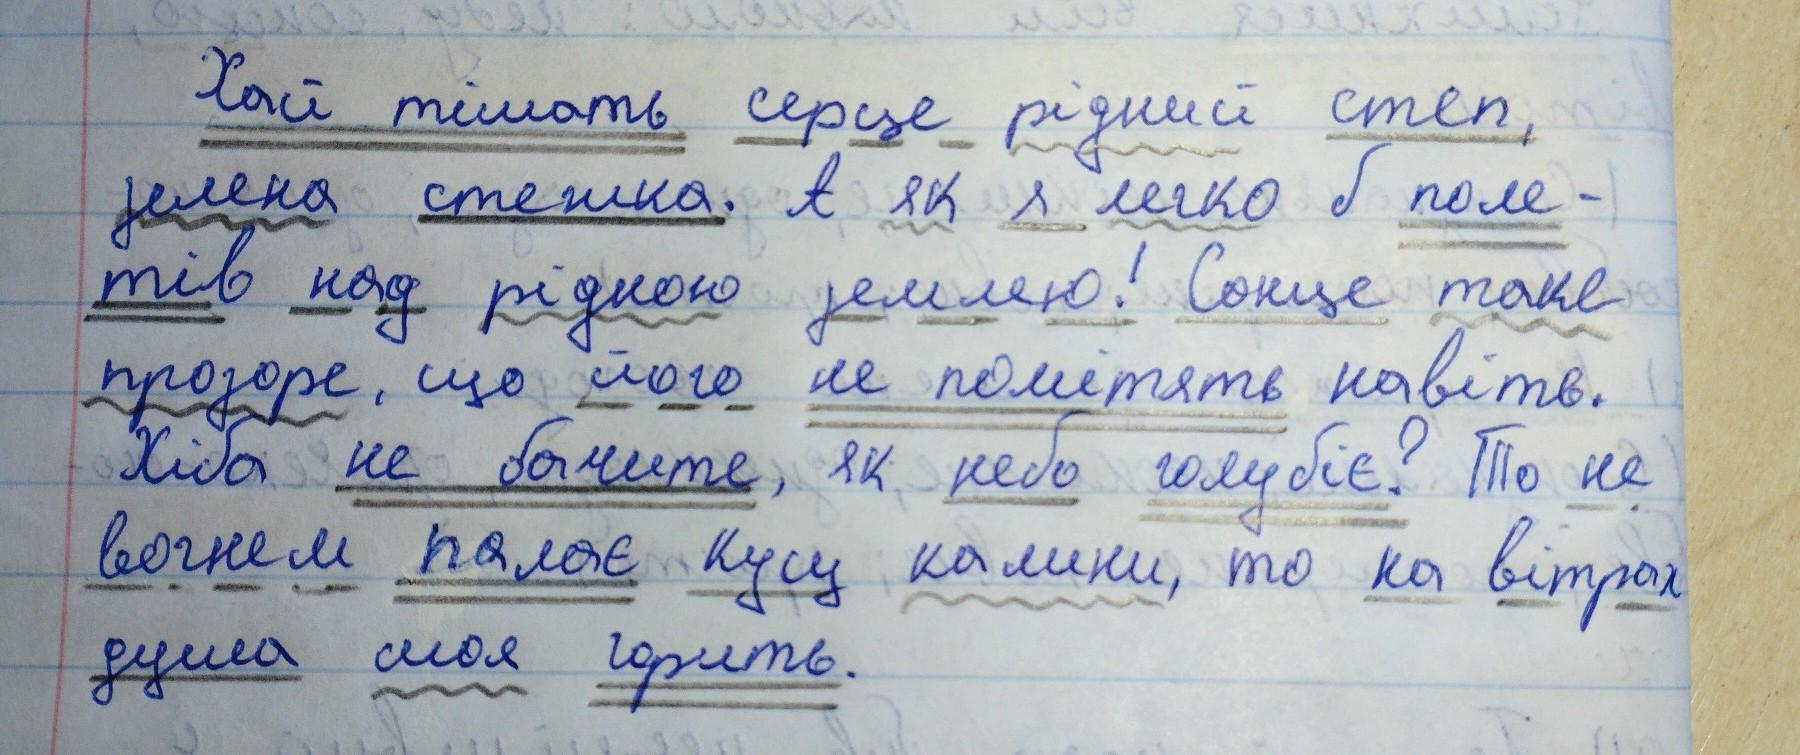 Хай тішать серце рідний степ,
зелена стежка. А як я легко б поле-
тів над рідною землею! Сонце таке
прозоре, що його не помітять навіть.
Хіба не бачите, як небо голубіє? То не
вогнем палає кущ калини, то на вітрах
душа моя горить.